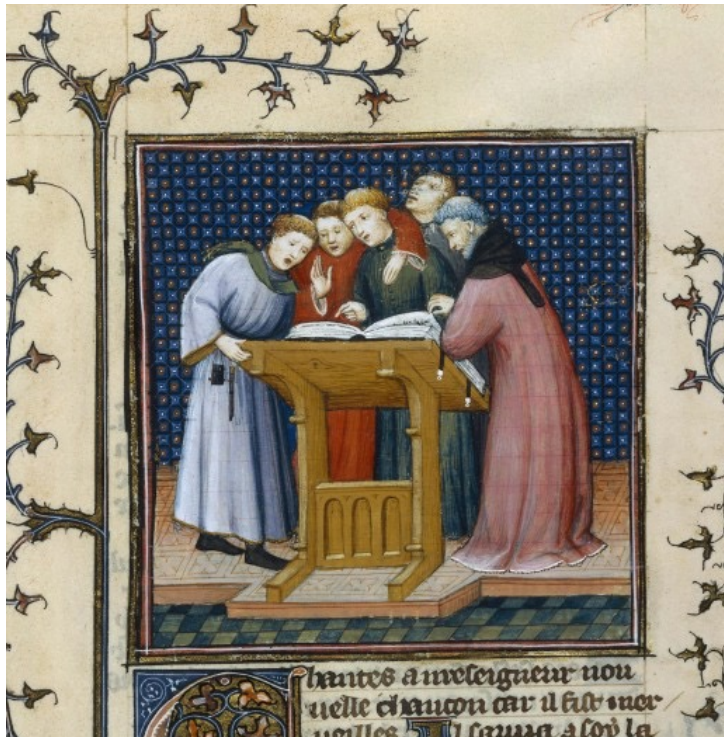 Chantes a nreseigneur nou
uelle chancon car il fist mer
ueilles Il sauua a soy la